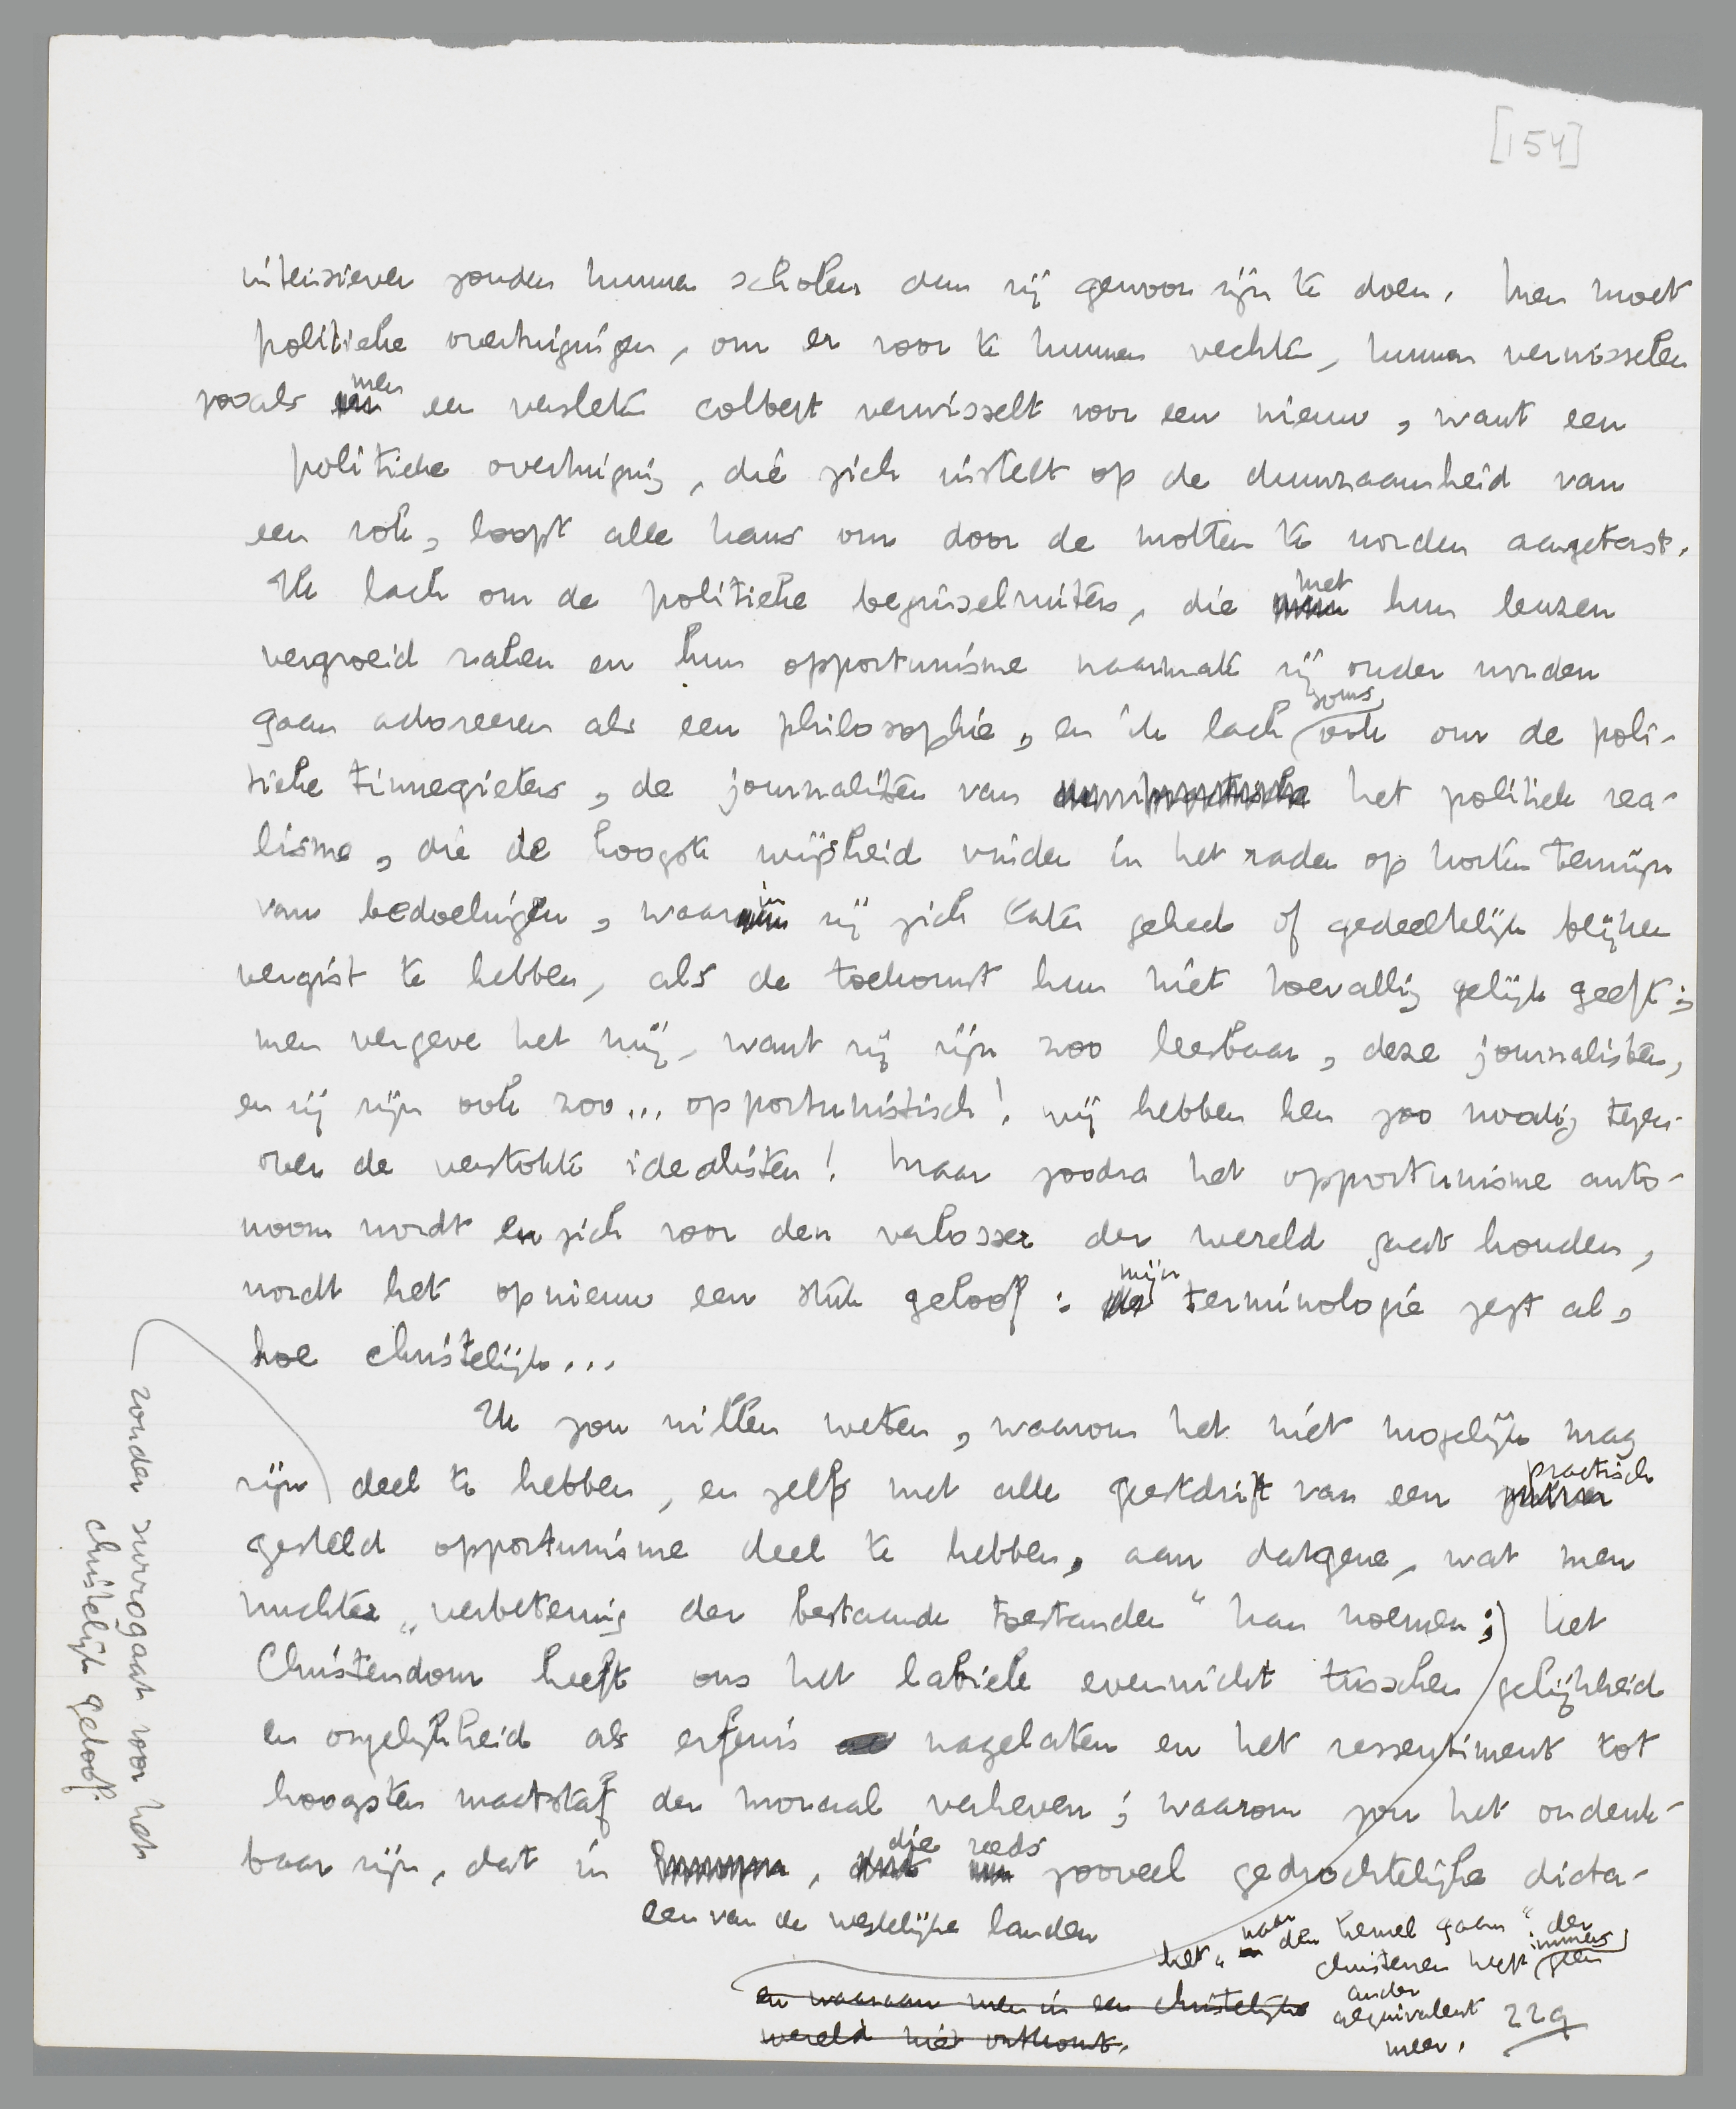 [154]
intensiever zouden kunnen schelen dan zij gewoon zijn te doen. Men moet
politieke overtuigingen, om er voor te kunnen vechten, kunnen verwisselen
zooals men een versleten colbert verwisselt voor een nieuw, want een
politieke overtuiging, die zich instelt op de duurzaamheid van
een rok, loopt alle kans om door de motten te worden aangetast.
Ik lach om de politieke beginselruiters, die met hun leuzen
vergroeid raken en hun opportunisme naarmate zij ouder worden
gaan adoreeren als een philosophie, en ik lach soms ook om de poli-
tieke tinnegieters, de journalisten van het politiek rea-
lisme, die de hoogste wijsheid vinden in het raden op korten termijn
van bedoelingen, waarin zij zich later geheel of gedeeltelijk blijken
vergist te hebben, als de toekomst hun niet toevallig gelijk geeft;
men vergeve het mij, want zij zijn zoo leesbaar, deze journalisten,
en zij zijn ook zoo... opportunistisch! wij hebben hen zoo noodig tegen-
over de verstokte idealisten! Maar zoodra het opportunisme auto-
noom wordt en zich voor den verlosser der wereld gaat houden,
wordt het opnieuw een stuk geloof: mijn terminologie zegt al,
hoe christelijk...
Ik zou willen weten, waarom het niet mogelijk mag
zijn deel te hebben, en zelfs met alle geestdrift van een practisch
gesteld opportunisme deel te hebben, aan datgene, wat men
nuchter „verbetering der bestaande toestanden" kan noemen; het
Christendom heeft ons het labiele evenwicht tusschen gelijkheid
en ongelijkheid als erfenis nagelaten en het ressentiment tot
hoogsten maatstaf der moraal verheven; waarom zou het ondenk-
baar zijn, dat in , die reeds zooveel gedrochtelijke dicta-
een van de westelijke landen
het „naar den hemel gaan" der
christenen heeft immers geen
ander
aequivalent
meer.
en waaraan men in een christelijke
wereld niet ontkomt.
229
zonder surrogaat voor het
christelijk geloof.